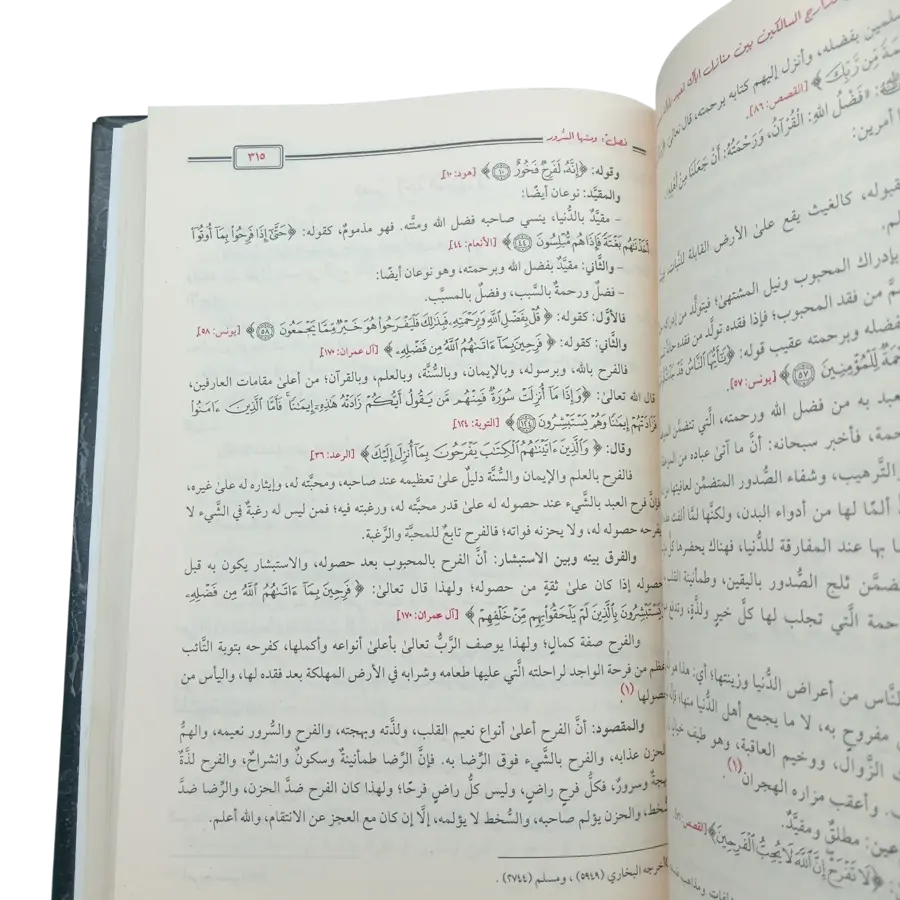 مدارج السالكين بين منازل إياك نعبد
سلمين بفضله، وأنزل إليهم كتابه برحمته، قال تعالى:
مَةً مِّن رَّبِّكَ ﴾ [القصص: ٨٦].
: «فَضْلُ اللهِ: الْقُرْآنُ، وَرَحْمَتُهُ: أَنْ جَعَلَنَا مِنْ أَهْلِهِ»
أمرين:
قبوله، كالغيث يقع على الأرض القابلة للنبات
لم.
بإدراك المحبوب ونيل المشتهى؛ فيتولَّد من
من فقد المحبوب؛ فإذا فقده تولَّد من فقده
فضله وبرحمته عقيب قوله: ﴿ يَٰٓأَيُّهَا ٱلنَّاسُ قَدْ
لِّلْمُؤْمِنِينَ ۝٥٧ ﴾ [يونس: ٥٧].
عبد به من فضل الله ورحمته، الَّتي تتضمَّن
حمة، فأخبر سبحانه: أنَّ ما آتىٰ عباده من
والتَّرهيب، وشفاء الصُّدور المتضمِّن لعافيتها
ألمًا لها من أدواء البدن، ولكنها لمَّا ألفت
بها عند المفارقة للدُّنيا، فهناك يحضرها كلُّ
ضمَّن ثلج الصُّدور باليقين، وطمأنينة
حمة الَّتي تجلب لها كلَّ خيرٍ ولذَّةٍ،
لنَّاس من أعراض الدُّنيا وزينتها؛ أي: هذا هو
مفروح به، لا ما يجمع أهل الدُّنيا منها؛
الزَّوال، ووخيم العاقبة، وهو طيف
. وأعقب مزاره الهجران(١).
عين: مطلقٌ ومقيَّدٌ.
﴿ لَا تَفْرَحْ إِنَّ ٱللَّهَ لَا يُحِبُّ ٱلْفَرِحِينَ ﴾ [القصص:
فصل: ومنها السُّرور
٣١٥
وقوله: ﴿ إِنَّهُۥ لَفَرِحٌ فَخُورٌ ۝١٠ ﴾ [هود: ١٠]
والمقيَّد: نوعان أيضًا:
– مقيَّدٌ بالدُّنيا، ينسي صاحبه فضل الله ومنَّته. فهو مذمومٌ، كقوله: ﴿ حَتَّىٰٓ إِذَا فَرِحُوا۟ بِمَآ أُوتُوٓا۟
أَخَذْنَٰهُم بَغْتَةً فَإِذَا هُم مُّبْلِسُونَ ۝٤٤ ﴾ [الأنعام: ٤٤]
– والثَّاني: مقيَّدٌ بفضل الله وبرحمته، وهو نوعان أيضًا:
– فضلٌ ورحمةٌ بالسَّبب، وفضلٌ بالمسبَّب.
فالأوَّل: كقوله: ﴿ قُلْ بِفَضْلِ ٱللَّهِ وَبِرَحْمَتِهِۦ فَبِذَٰلِكَ فَلْيَفْرَحُوا۟ هُوَ خَيْرٌ مِّمَّا يَجْمَعُونَ ۝٥٨ ﴾ [يونس: ٥٨]
والثَّاني: كقوله: ﴿ فَرِحِينَ بِمَآ ءَاتَىٰهُمُ ٱللَّهُ مِن فَضْلِهِۦ ﴾ [آل عمران: ١٧٠]
فالفرح بالله، وبرسوله، وبالإيمان، وبالسُّنَّة، وبالعلم، وبالقرآن؛ من أعلىٰ مقامات العارفين،
قال الله تعالىٰ: ﴿ وَإِذَا مَآ أُنزِلَتْ سُورَةٌ فَمِنْهُم مَّن يَقُولُ أَيُّكُمْ زَادَتْهُ هَٰذِهِۦٓ إِيمَٰنًا ۚ فَأَمَّا ٱلَّذِينَ ءَامَنُوا۟
فَزَادَتْهُمْ إِيمَٰنًا وَهُمْ يَسْتَبْشِرُونَ ۝١٢٤ ﴾ [التوبة: ١٢٤]
وقال: ﴿ وَٱلَّذِينَ ءَاتَيْنَٰهُمُ ٱلْكِتَٰبَ يَفْرَحُونَ بِمَآ أُنزِلَ إِلَيْكَ ﴾ [الرعد: ٣٦]
فالفرح بالعلم والإيمان والسُّنَّة دليلٌ علىٰ تعظيمه عند صاحبه، ومحبَّته له، وإيثاره له علىٰ غيره،
فإنَّ فرح العبد بالشَّيء عند حصوله له علىٰ قدر محبَّته له، ورغبته فيه؛ فمن ليس له رغبةٌ في الشَّيء لا
يفرحه حصوله له، ولا يحزنه فواته؛ فالفرح تابعٌ للمحبَّة والرَّغبة.
والفرق بينه وبين الاستبشار: أنَّ الفرح بالمحبوب بعد حصوله، والاستبشار يكون به قبل
حصوله إذا كان علىٰ ثقةٍ من حصوله؛ ولهذا قال تعالىٰ: ﴿ فَرِحِينَ بِمَآ ءَاتَىٰهُمُ ٱللَّهُ مِن فَضْلِهِۦ
وَيَسْتَبْشِرُونَ بِٱلَّذِينَ لَمْ يَلْحَقُوا۟ بِهِم مِّنْ خَلْفِهِمْ ﴾ [آل عمران: ١٧٠]
والفرح صفة كمالٍ؛ ولهذا يوصف الرَّبُّ تعالىٰ بأعلىٰ أنواعه وأكملها، كفرحه بتوبة التَّائب
أعظم من فرحة الواجد لراحلته الَّتي عليها طعامه وشرابه في الأرض المهلكة بعد فقده لها، واليأس من
حصولها(١).
والمقصود: أنَّ الفرح أعلىٰ أنواع نعيم القلب، ولذَّته وبهجته، والفرح والسُّرور نعيمه، والهمُّ
والحزن عذابه، والفرح بالشَّيء فوق الرِّضا به. فإنَّ الرِّضا طمأنينةٌ وسكونٌ وانشراحٌ، والفرح لذَّةٌ
وبهجةٌ وسرورٌ، فكلُّ فرحٍ راضٍ، وليس كلُّ راضٍ فرحًا؛ ولهذا كان الفرح ضدَّ الحزن، والرِّضا ضدَّ
السُّخط، والحزن يؤلم صاحبه، والسُّخط لا يؤلمه، إلَّا إن كان مع العجز عن الانتقام، والله أعلم.
أخرجه البخاري (٥٩٤٩) ، ومسلم (٢٧٤٤) .